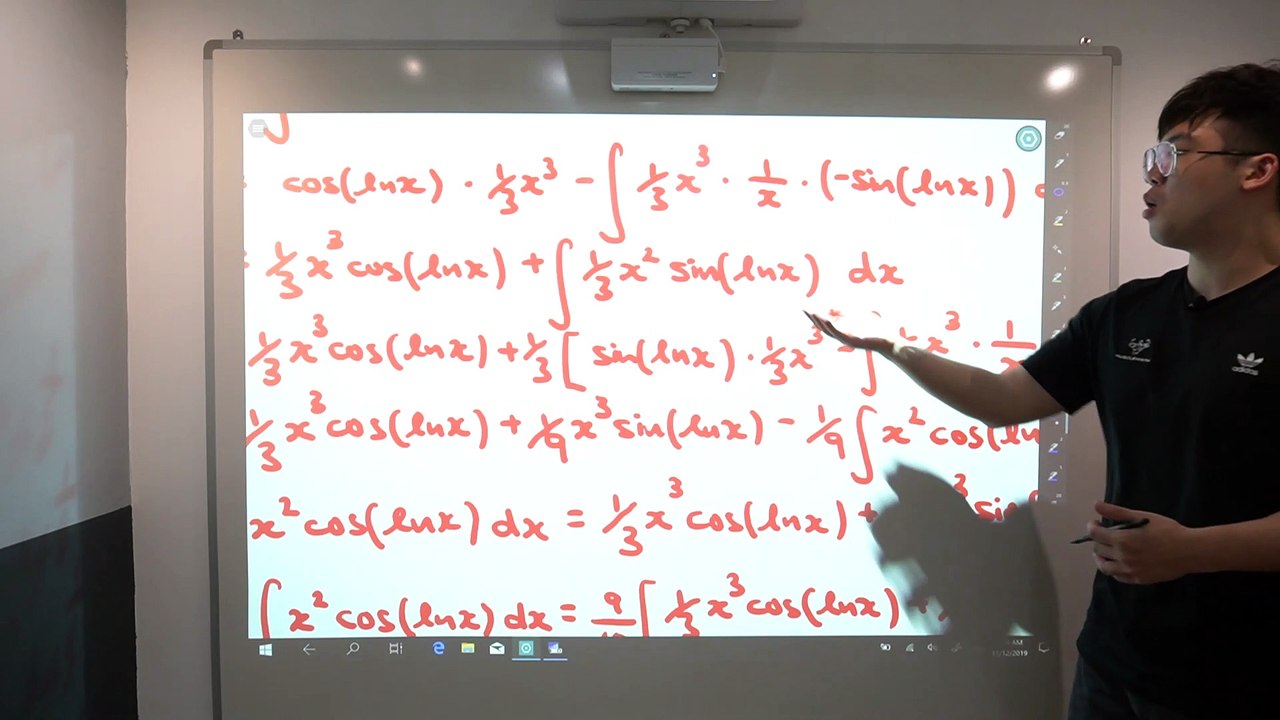 cos(lnx) · 1/3 x³ - ∫ 1/3 x³ · 1/x · (-sin(lnx))
= 1/3 x³ cos(lnx) + ∫ 1/3 x² sin(lnx) dx
1/3 x³ cos(lnx) + 1/3 [ sin(lnx) · 1/3 x³ - ∫ 1/3 x³ · 1/
1/3 x³ cos(lnx) + 1/9 x³ sin(lnx) - 1/9 ∫ x² cos(ln
x² cos(lnx) dx = 1/3 x³ cos(lnx) + ³ sin
∫ x² cos(lnx) dx = 9/10 [ 1/3 x³ cos(lnx) +
adidas
AM
11/12/2019